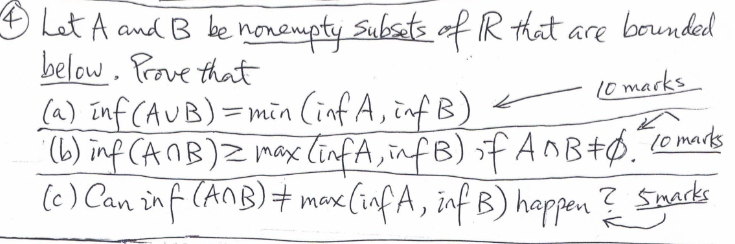 ④ Let A and B be nonempty subsets of ℝ that are bounded
below. Prove that
(a) inf(A∪B) = min(inf A, inf B) ← 10 marks
(b) inf(A∩B) ≥ max(inf A, inf B) if A∩B≠∅. 10 marks
(c) Can inf(A∩B) ≠ max(inf A, inf B) happen? 5 marks